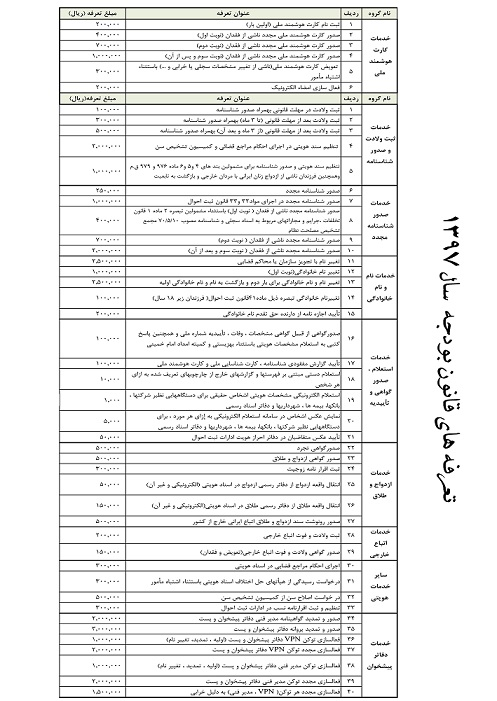 تعرفه های قانون بودجه سال ۱۳۹۷
نام گروه ردیف عنوان تعرفه مبلغ تعرفه (ریال)
خدمات کارت هوشمند ملی
۱ ثبت نام کارت هوشمند ملی (اولین بار) ۲۰۰,۰۰۰
۲ صدور کارت هوشمند ملی مجدد ناشی از فقدان (نوبت اول) ۴۰۰,۰۰۰
۳ صدور کارت هوشمند ملی مجدد ناشی از فقدان (نوبت دوم) ۷۰۰,۰۰۰
۴ صدور کارت هوشمند ملی مجدد ناشی از فقدان (نوبت سوم و پس از آن) ۱,۰۰۰,۰۰۰
۵ تعویض کارت هوشمند ملی(ناشی از تغییر مشخصات سجلی یا خرابی و ...) باستثناء
اشتباه مأمور ۳۰۰,۰۰۰
۶ فعال سازی امضاء الکترونیک ۲۰۰,۰۰۰
نام گروه ردیف عنوان تعرفه مبلغ تعرفه(ریال)
خدمات ثبت ولادت و صدور شناسنامه
۱ ثبت ولادت در مهلت قانونی بهمراه صدور شناسنامه ۱۰۰,۰۰۰
۲ ثبت ولادت بعد از مهلت قانونی (تا ۳ ماه) بهمراه صدور شناسنامه ۳۰۰,۰۰۰
۳ ثبت ولادت بعد از مهلت قانونی (از ۳ ماه و بعد آن) بهمراه صدور شناسنامه ۵۰۰,۰۰۰
۴ تنظیم سند هویتی در اجرای احکام مراجع قضائی و کمیسیون تشخیص سن ۲,۰۰۰,۰۰۰
۵ تنظیم سند هویتی و صدور شناسنامه برای مشمولین بند های ۴ و۵ و۶ ماده ۹۷۶ و ۹۷۹ ق.م
وهمچنین فرزندان ناشی از ازدواج زنان ایرانی با مردان خارجی و بازگشت به تابعیت ۱,۰۰۰,۰۰۰
خدمات صدور شناسنامه مجدد
۶ صدور شناسنامه مجدد ۲۵۰,۰۰۰
۷ صدور شناسنامه مجدد در اجرای مواد۳۲ و۳۳ قانون ثبت احوال ۱,۰۰۰,۰۰۰
۸ صدور شناسنامه مجدد ناشی از فقدان ( نوبت اول) باستثناء مشمولین تبصره ۳ ماده ۱ قانون
تخلفات ،جرایم و مجازاتهای مربوط به اسناد سجلی و شناسنامه مصوب ۷۰/۵/۱۰ مجمع
تشخیص مصلحت نظام ۴۰۰,۰۰۰
۹ صدور شناسنامه مجدد ناشی از فقدان ( نوبت دوم) ۷۰۰,۰۰۰
۱۰ صدور شناسنامه مجدد ناشی از فقدان ( نوبت سوم و بعد از آن) ۲,۰۰۰,۰۰۰
خدمات نام و نام خانوادگی
۱۱ تغییر نام با تجویز سازمان یا محاکم قضایی ۲,۵۰۰,۰۰۰
۱۲ تغییر نام خانوادگی(نوبت اول) ۱,۰۰۰,۰۰۰
۱۳ تغییر نام و نام خانوادگی برای بار دوم و بازگشت به نام و نام خانوادگی اولیه ۲,۵۰۰,۰۰۰
۱۴ تغییرنام خانوادگی تبصره ذیل ماده۴۱قانون ثبت احوال( فرزندان زیر ۱۸ سال) ۱۰۰,۰۰۰
۱۵ تأیید اجازه نامه از دارنده حق تقدم نام خانوادگی ۲۰۰,۰۰۰
خدمات استعلام ، صدور گواهی و تأییدیه
۱۶ صدورگواهی از قبیل گواهی مشخصات ، وفات ، تأییدیه شماره ملی و همچنین پاسخ
کتبی به استعلام مشخصات هویتی باستثناء بهزیستی و کمیته امداد امام خمینی ۱۰۰,۰۰۰
۱۷ تأیید گزارش مفقودی شناسنامه ، کارت شناسایی ملی و کارت هوشمند ملی ۱۰۰,۰۰۰
۱۸ استعلام دستی مبتنی بر فهرستها و گزارشهای خارج از چارچوبهای تعریف شده به ازای
هر شخص ۱۰,۰۰۰
۱۹ استعلام الکترونیکی مشخصات هویتی اشخاص حقیقی برای دستگاههایی نظیر شرکتها ،
بانکها، بیمه ها ، شهرداریها و دفاتر اسناد رسمی ۱,۰۰۰
۲۰ نمایش عکس اشخاص در سامانه استعلام الکترونیکی به إزای هر مورد ، برای
دستگاههایی نظیر شرکتها ، بانکها، بیمه ها ، شهرداریها و دفاتر اسناد رسمی ۵,۰۰۰
۲۱ تأیید عکس متقاضیان در دفاتر احراز هویت ادارات ثبت احوال ۵۰,۰۰۰
خدمات ازدواج و طلاق
۲۲ صدور گواهی تجرد ۵۰۰,۰۰۰
۲۳ صدور گواهی ازدواج و طلاق ۵۰۰,۰۰۰
۲۴ ثبت اقرار نامه زوجیت ۳۰۰,۰۰۰
۲۵ انتقال واقعه ازدواج از دفاتر رسمی ازدواج در اسناد هویتی(الکترونیکی و غیر آن) ۵۰,۰۰۰
۲۶ انتقال واقعه طلاق از دفاتر رسمی طلاق در اسناد هویتی(الکترونیکی و غیر آن) ۱۵۰,۰۰۰
۲۷ صدور رونوشت سند ازدواج و طلاق اتباع ایرانی خارج از کشور ۵۰۰,۰۰۰
خدمات اتباع خارجی
۲۸ ثبت ولادت و فوت اتباع خارجی ۲۰۰,۰۰۰
۲۹ صدور گواهی ولادت و فوت اتباع خارجی(تعویض و فقدان) ۱۵۰,۰۰۰
سایر خدمات هویتی
۳۰ اجرای احکام مراجع قضایی در اسناد هویتی ۳۰۰,۰۰۰
۳۱ درخواست رسیدگی از هیأتهای حل اختلاف اسناد هویتی باستثناء، اشتباه مأمور ۳۰۰,۰۰۰
۳۲ در خواست اصلاح سن از کمیسیون تشخیص سن ۵۰۰,۰۰۰
۳۳ تنظیم و ثبت اقرارنامه نسب در ادارات ثبت احوال ۳۰۰,۰۰۰
خدمات دفاتر پیشخوان
۳۴ صدور و تمدید گواهینامه مدیر فنی دفاتر پیشخوان و پست ۲,۰۰۰,۰۰۰
۳۵ صدور و تمدید پروانه دفاتر پیشخوان و پست ۳,۰۰۰,۰۰۰
۳۶ فعالسازی توکن VPN دفاتر پیشخوان و پست (اولیه ، تمدید، تغییر نام) ۱,۰۰۰,۰۰۰
۳۷ فعالسازی مجدد توکن VPN دفاتر پیشخوان و پست ۲,۰۰۰,۰۰۰
۳۸ فعالسازی توکن مدیر فنی دفاتر پیشخوان و پست (اولیه ، تمدید ، تغییر نام) ۱,۰۰۰,۰۰۰
۳۹ فعالسازی مجدد توکن مدیر فنی دفاتر پیشخوان و پست ۲,۰۰۰,۰۰۰
۴۰ فعالسازی مجدد هر توکن( VPN ، مدیر فنی) به دلیل خرابی ۱,۵۰۰,۰۰۰